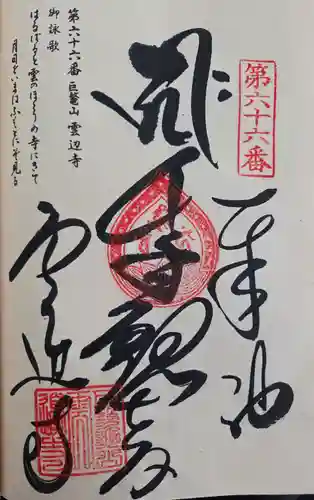 第六十六番
奉納
千手観世音
雲辺寺
第六十六番 巨鼇山 雲辺寺
御詠歌
はるばると雲のほとりの寺にきて
月日をいまはふもとにぞ見る